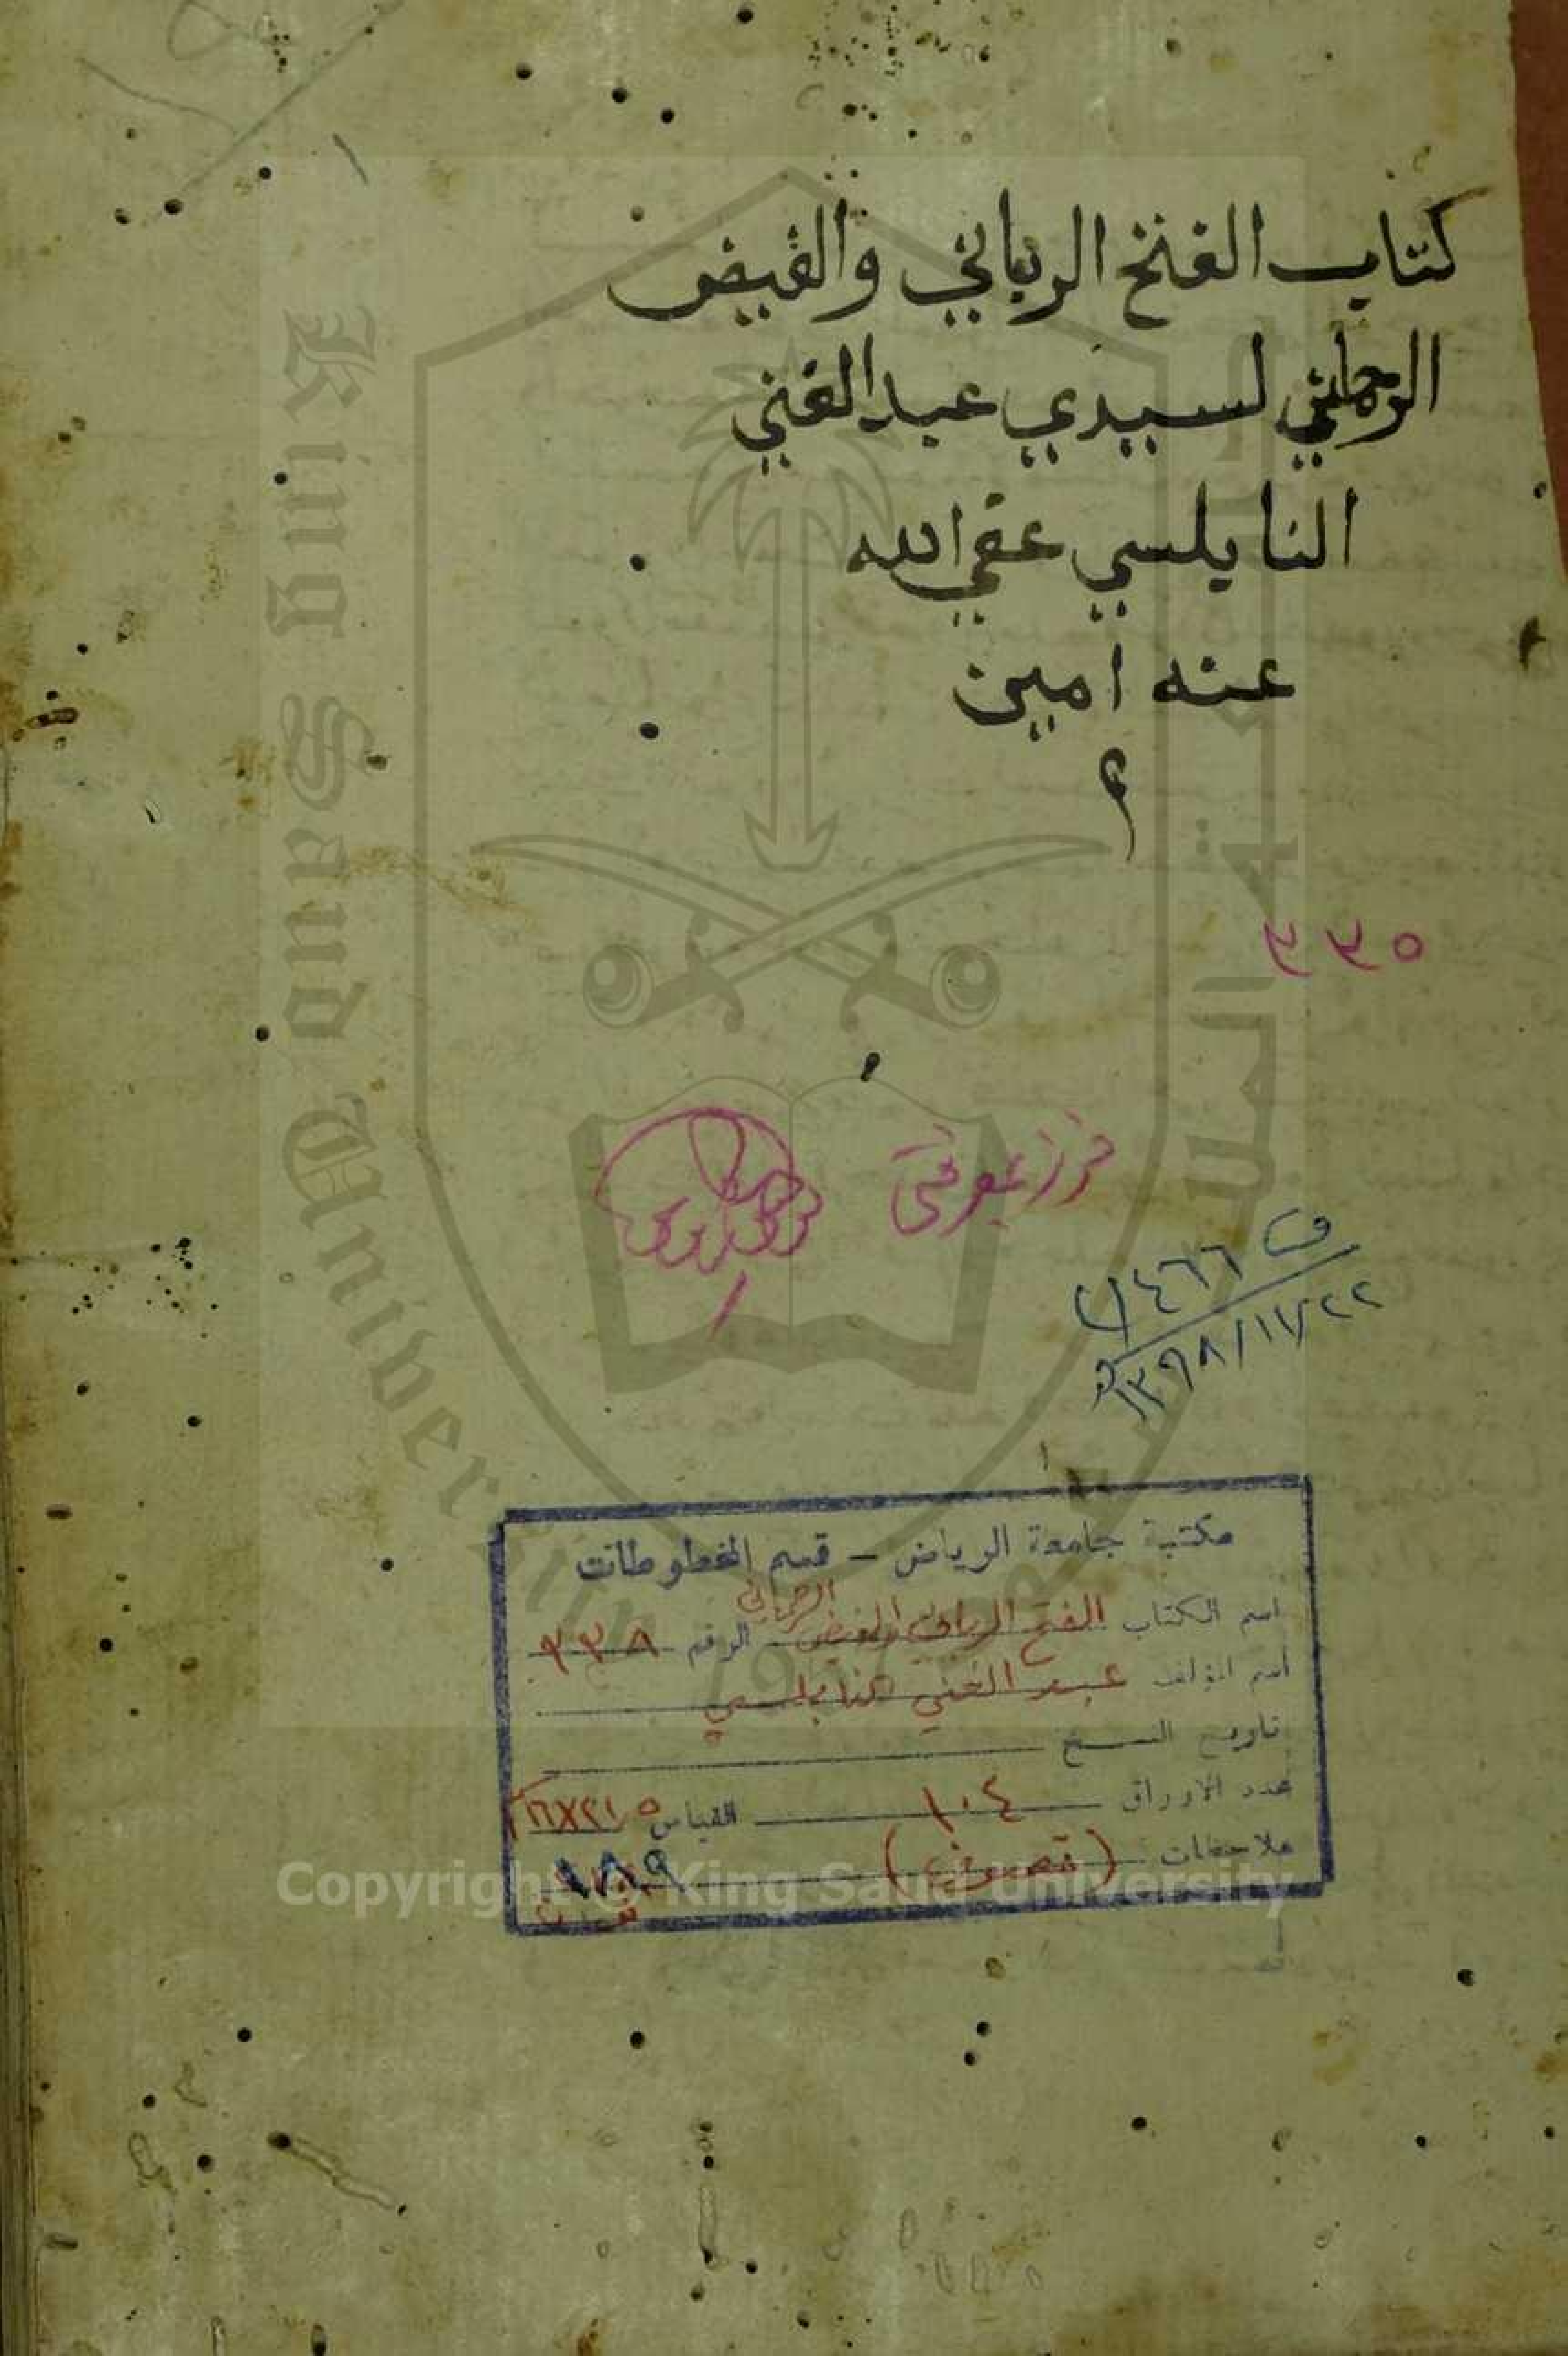 كتاب الفتح الرباني والفيض
الرحماني لسيدي عبدالغني
النابلسي عفي الله
عنه امين
م
٥٣٣
فرز بمعرفتي
ف ١٤٦٦
١٣٩٨/١١/٢٢ هـ
مكتبة جامعة الرياض – قسم المخطوطات
اسم الكتاب الفتح الرباني والفيض الرحماني الرقم ٩٣٨
اسم المؤلف عبد الغني النابلسي
تاريخ النسخ
عدد الاوراق ١٠٤ القياس ١٦×٢١٫٥
ملاحظات (تصوف) ١٨٩
King Saud University
Copyright © King Saud University